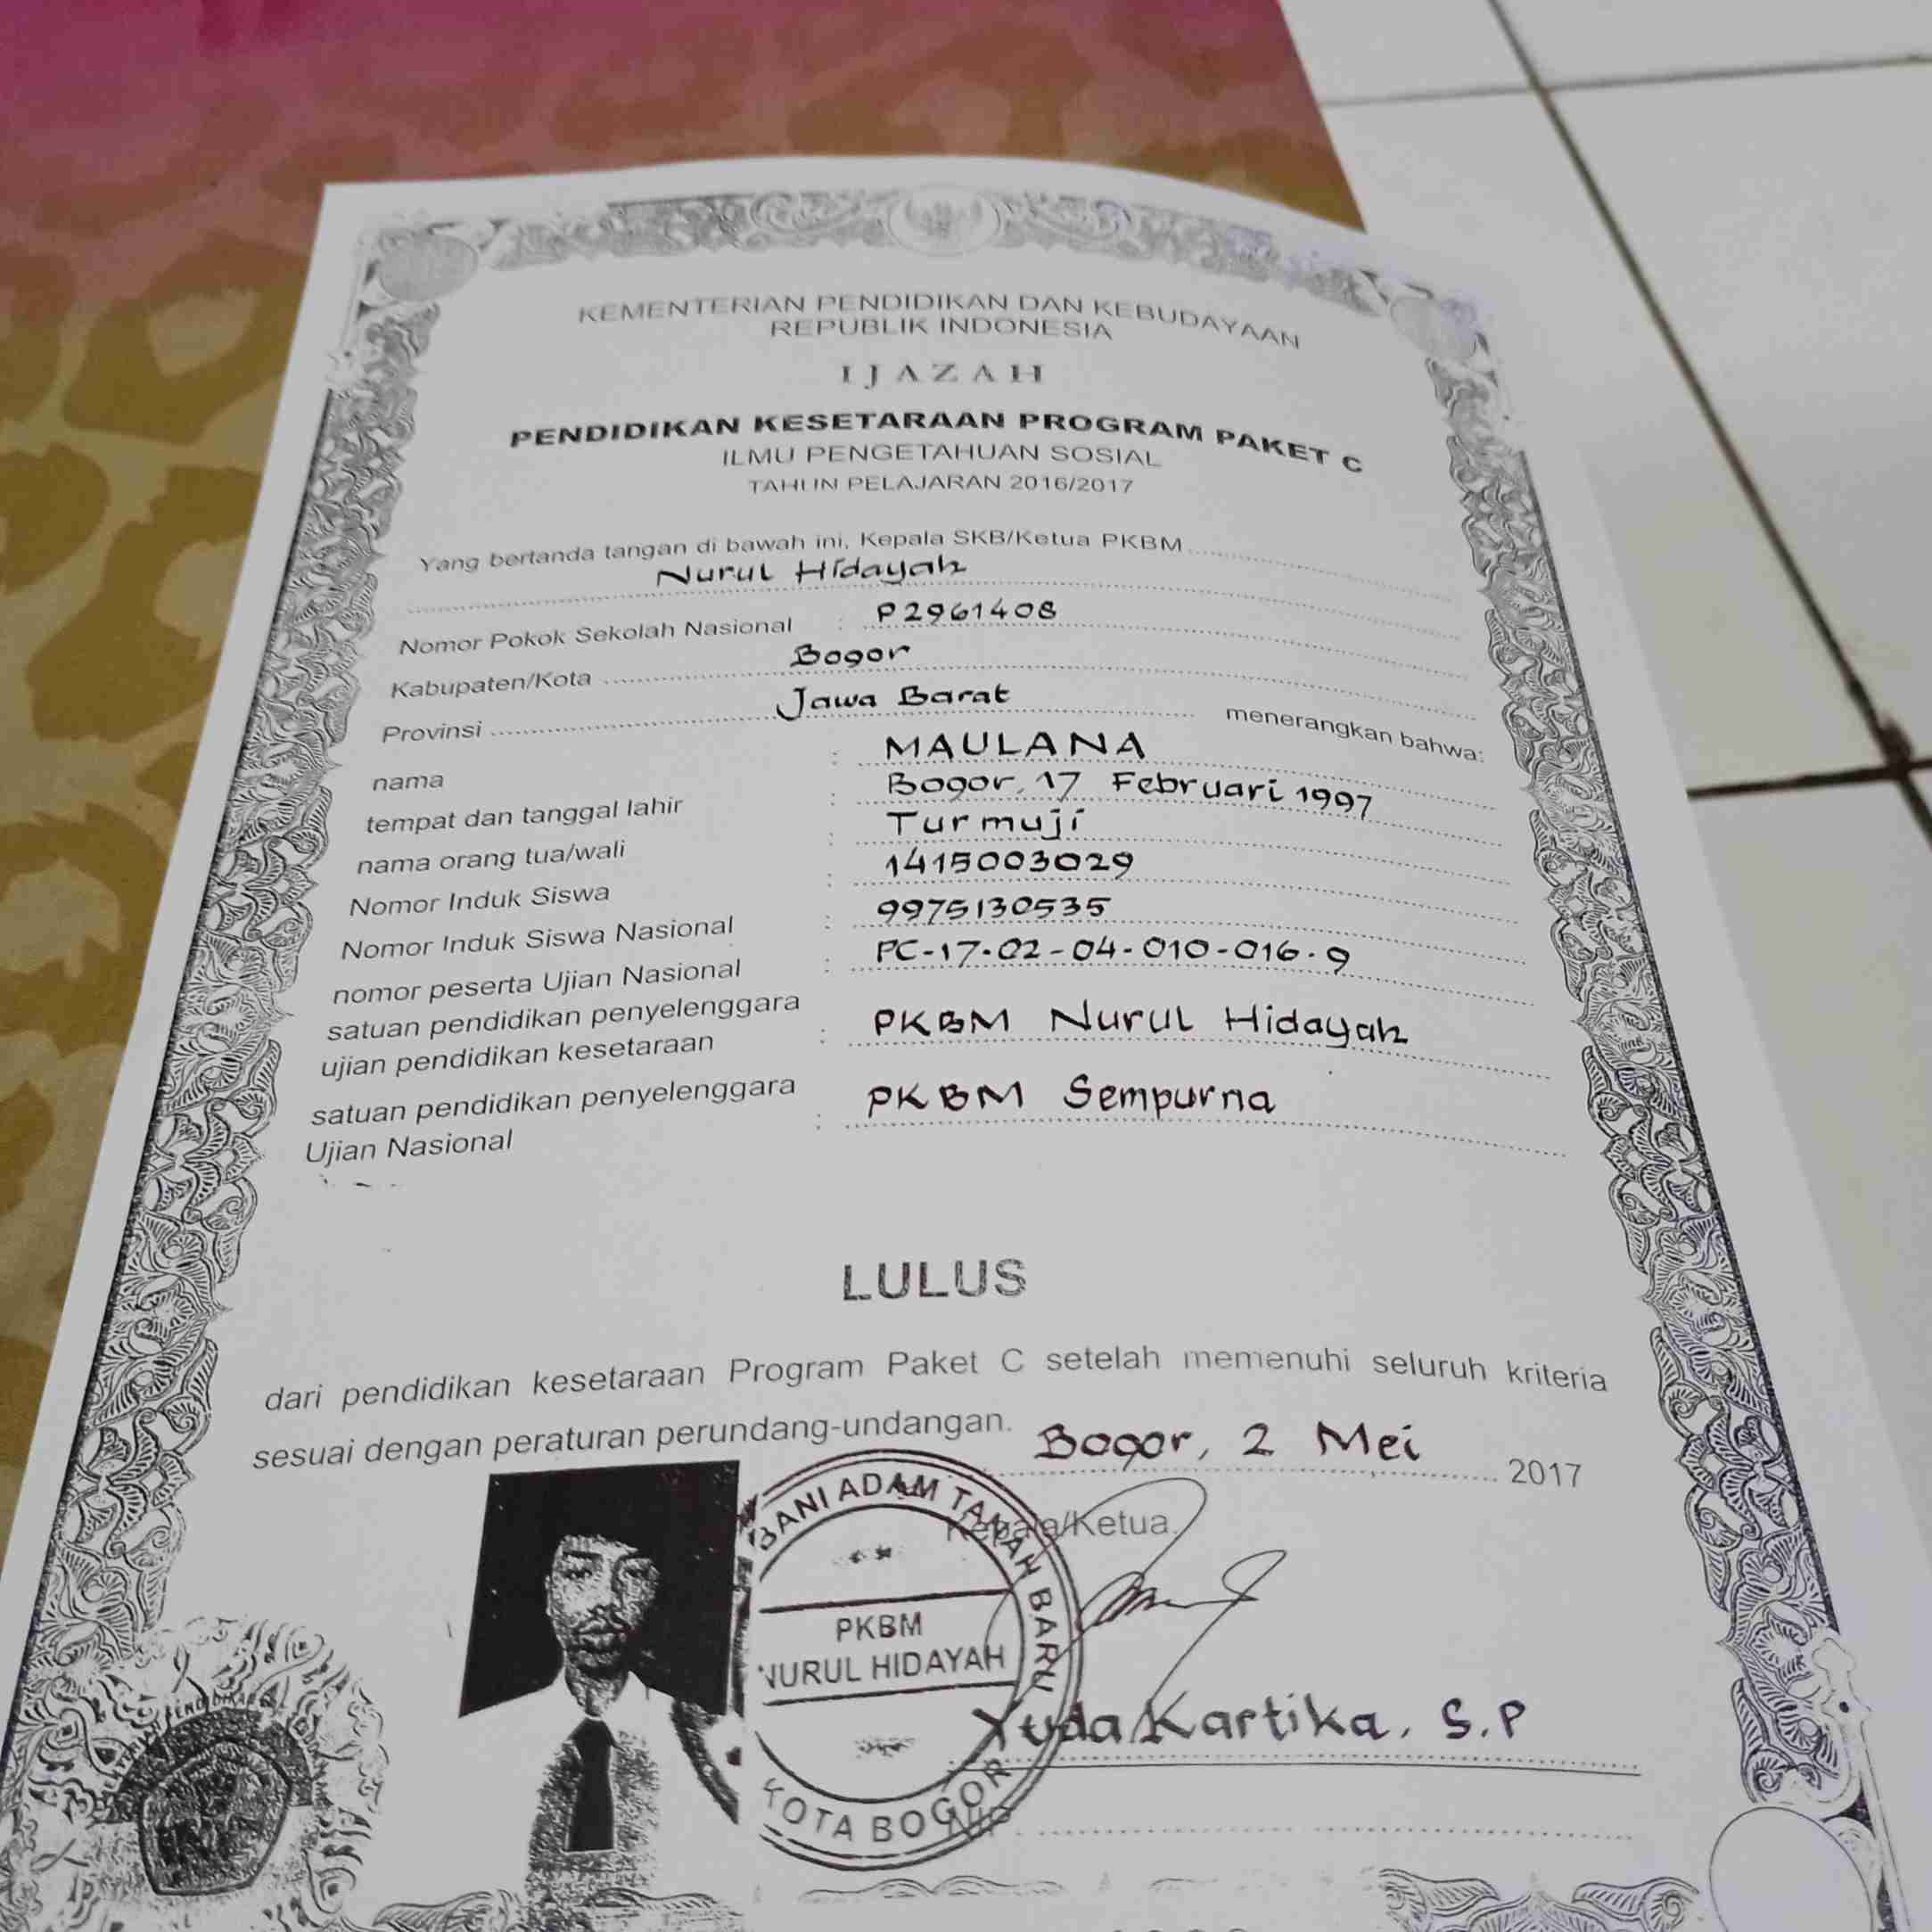 KEMENTERIAN PENDIDIKAN DAN KEBUDAYAAN
REPUBLIK INDONESIA
IJAZAH
PENDIDIKAN KESETARAAN PROGRAM PAKET C
ILMU PENGETAHUAN SOSIAL
TAHUN PELAJARAN 2016/2017
Yang bertanda tangan di bawah ini, Kepala SKB/Ketua PKBM
Nurul Hidayah
Nomor Pokok Sekolah Nasional : P2961408
Kabupaten/Kota Bogor
Provinsi Jawa Barat menerangkan bahwa:
nama : MAULANA
tempat dan tanggal lahir : Bogor, 17 Februari 1997
nama orang tua/wali : Turmuji
Nomor Induk Siswa : 1415003029
Nomor Induk Siswa Nasional : 9975130535
nomor peserta Ujian Nasional : PC-17-02-04-010-016-9
satuan pendidikan penyelenggara
ujian pendidikan kesetaraan : PKBM Nurul Hidayah
satuan pendidikan penyelenggara
Ujian Nasional : PKBM Sempurna
LULUS
dari pendidikan kesetaraan Program Paket C setelah memenuhi seluruh kriteria
sesuai dengan peraturan perundang-undangan.
Bogor, 2 Mei 2017
Kepala/Ketua
BANI ADAM TANAH BARU
PKBM
NURUL HIDAYAH
KOTA BOGOR
Yuda Kartika, S.P
NIP